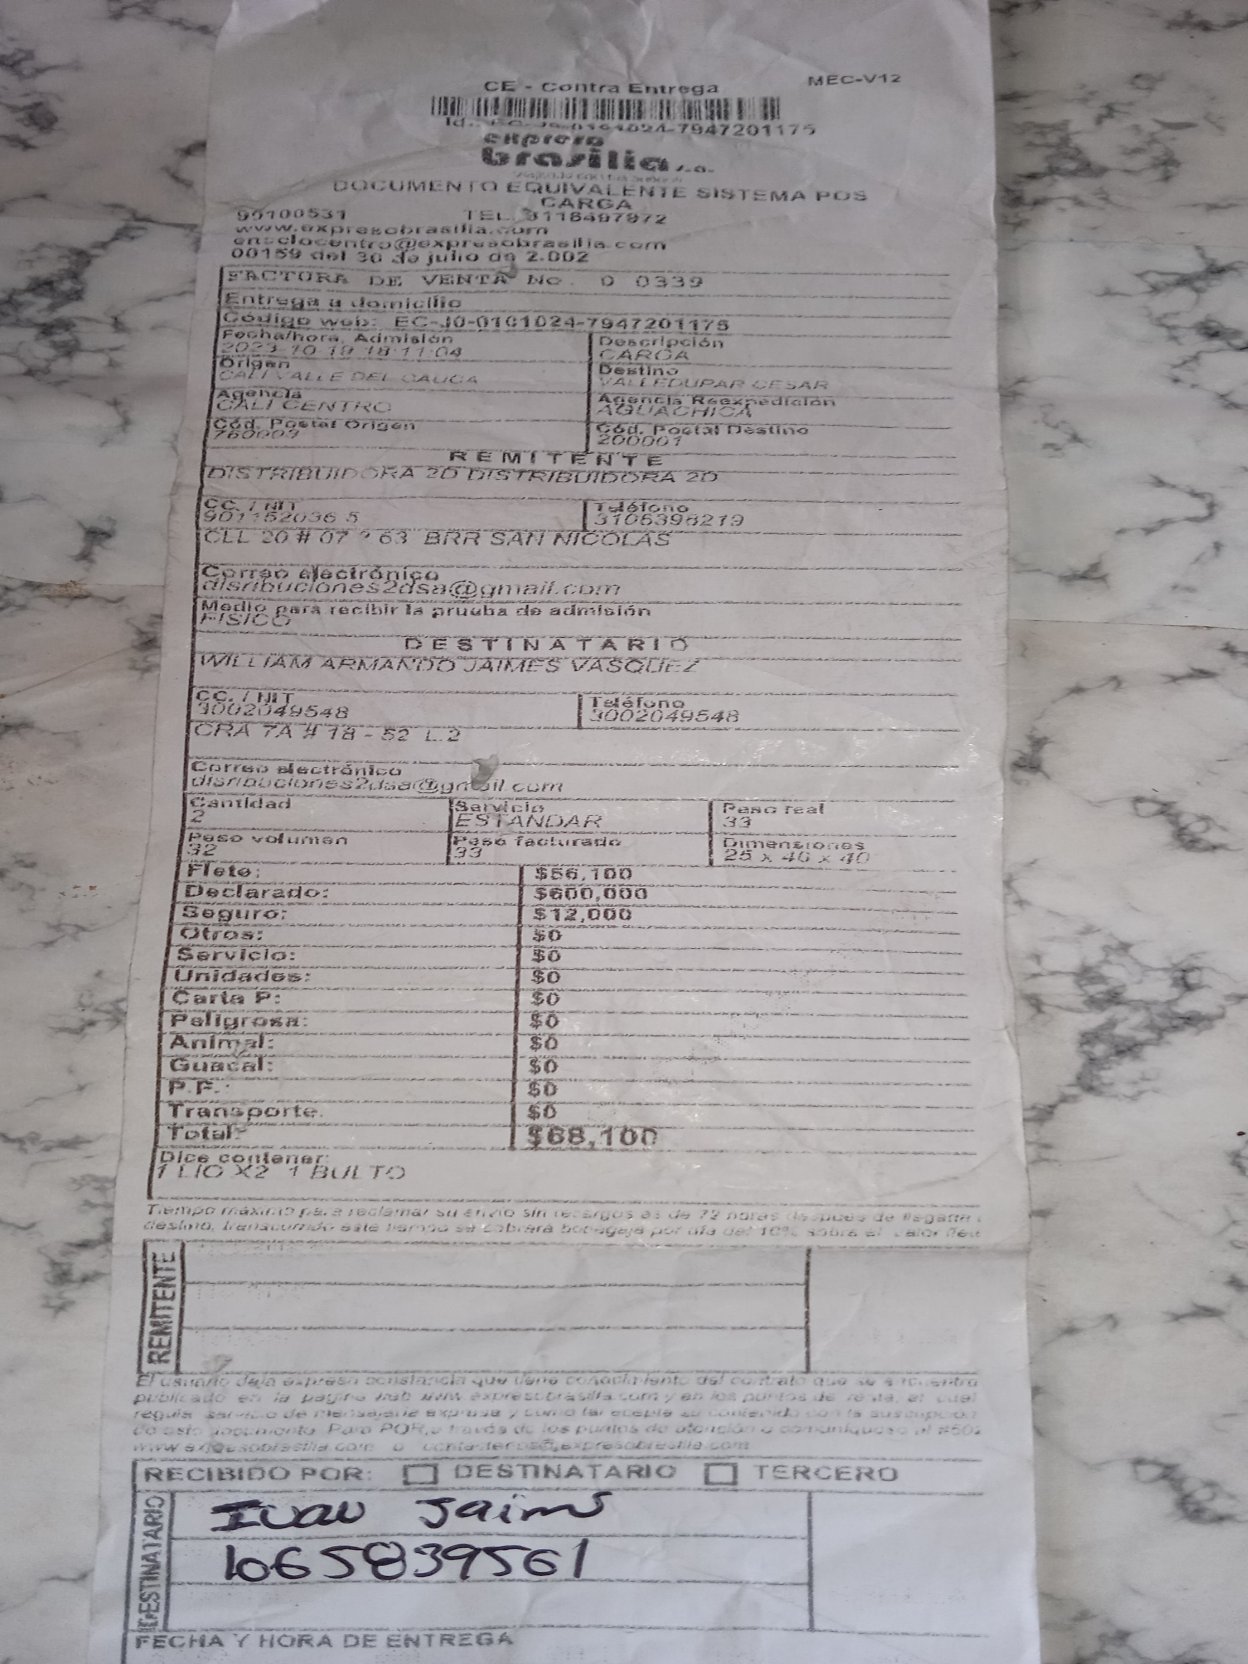 CE - Contra Entrega
MEC-V12
Id.: EC-J0-0101024-7947201175
expreso
brasilia s.a.
DOCUMENTO EQUIVALENTE SISTEMA POS
CARGA
90100531 TEL. 3118497972
www.expresobrasilia.com
ensclocentro@expresobrasilia.com
00159 del 30 de julio de 2.002
FACTURA DE VENTA No. 0 0339
Entrega a domicilio
Código web: EC-J0-0101024-7947201175
Fecha/hora Admisión Descripción
2023-10-19 18:11:04 CARGA
Origen Destino
CALI VALLE DEL CAUCA VALLEDUPAR CESAR
Agencia Agencia Reexpedición
CALI CENTRO AGUACHICA
Cód. Postal Origen Cód. Postal Destino
760003 200001
REMITENTE
DISTRIBUIDORA 2D DISTRIBUIDORA 2D
CC. / NIT Teléfono
901152036 5 3106398219
CLL 20 # 07 63 BRR SAN NICOLAS
Correo electrónico
disribuciones2dsa@gmail.com
Medio para recibir la prueba de admisión
FISICO
DESTINATARIO
WILLIAM ARMANDO JAIMES VASQUEZ
CC. / NIT Teléfono
3002049548 3002049548
CRA 7A # 18 - 52 L.2
Correo electrónico
disribuciones2dsa@gmail.com
Cantidad Servicio Peso real
2 ESTANDAR 33
Peso volumen Peso facturado Dimensiones
32 33 25 x 40 x 40
Flete: $56,100
Declarado: $600,000
Seguro: $12,000
Otros: $0
Servicio: $0
Unidades: $0
Carta P: $0
Peligrosa: $0
Animal: $0
Guacal: $0
P.F.: $0
Transporte: $0
Total: $68,100
Dice contener:
1 LIO X2 1 BULTO
Tiempo máximo para reclamar su envío sin recargos es de 72 horas después de llegar a
destino, transcurrido este tiempo se cobrará bodegaje por día del 10% sobre el valor flete
REMITENTE
El usuario deja expresa constancia que tiene conocimiento del contrato que se encuentra
publicado en la página web www.expresobrasilia.com y en los puntos de venta, el cual
regula servicio de mensajería expresa y como tal acepta su contenido con la suscripción
de este documento. Para PQR, a través de los puntos de atención o comuníquese al #502
www.expresobrasilia.com o contactenos@expresobrasilia.com
RECIBIDO POR: DESTINATARIO TERCERO
DESTINATARIO
Ivan Jaims
1065839561
FECHA Y HORA DE ENTREGA